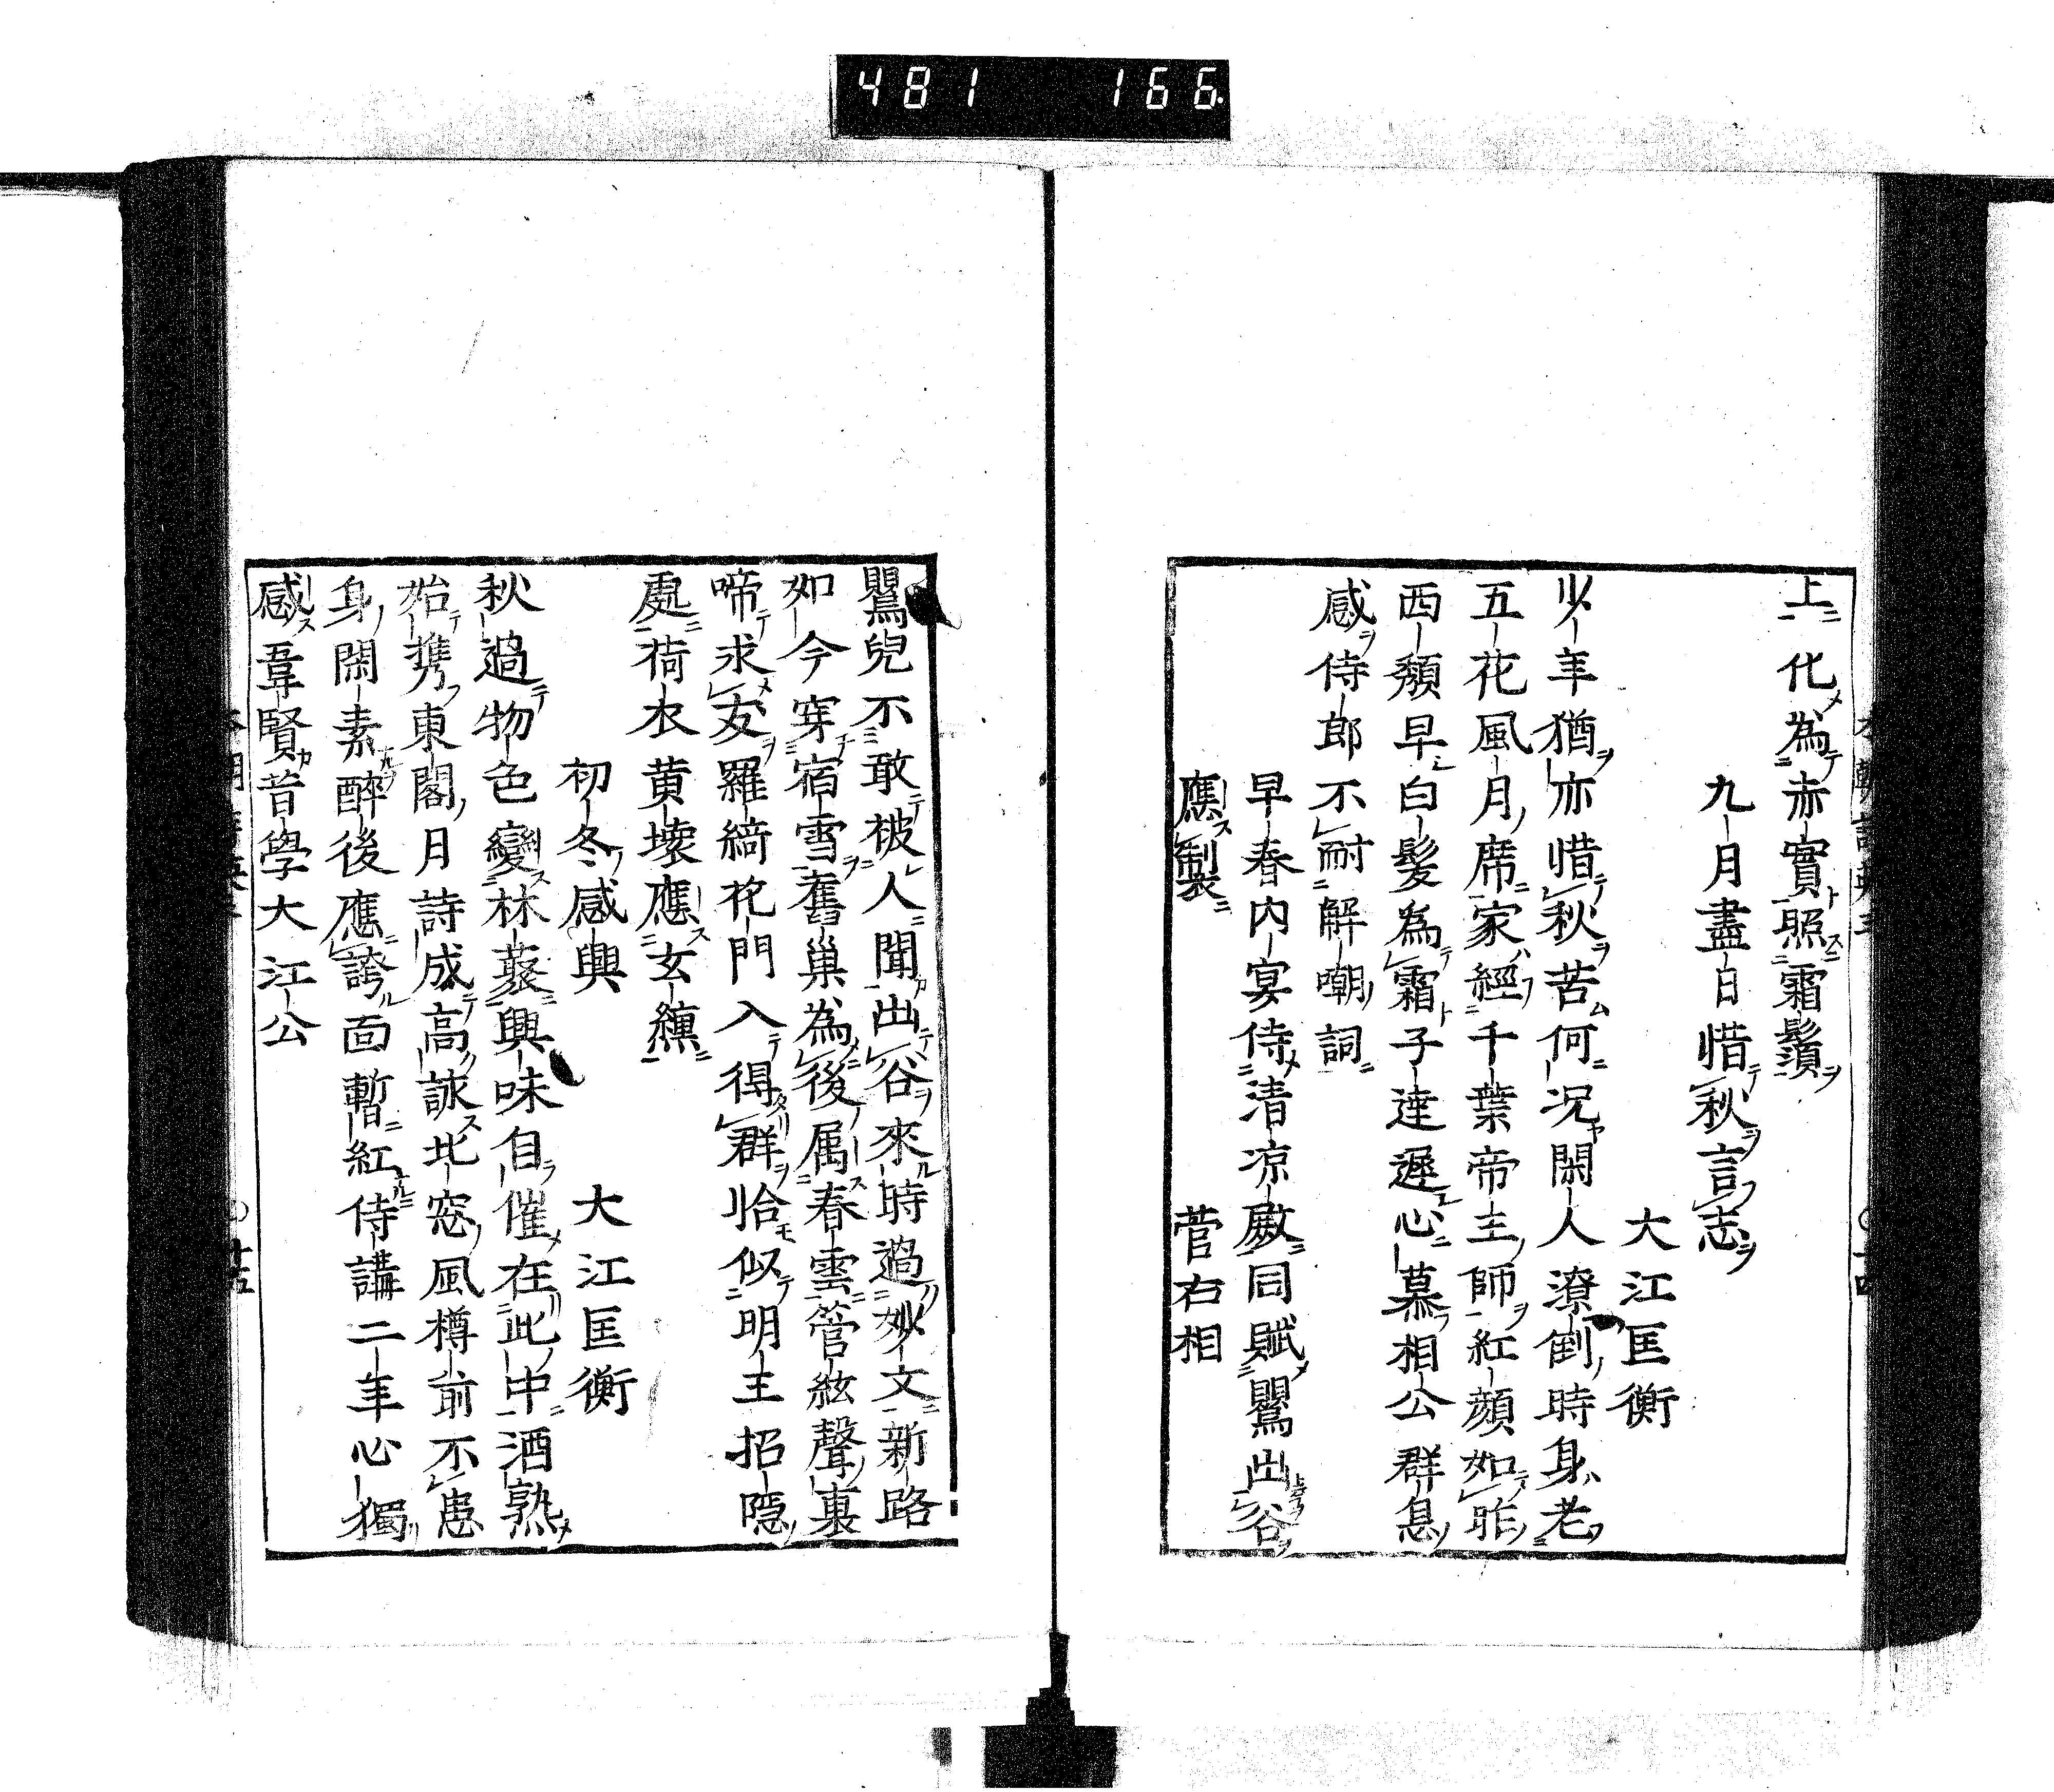 481 166
上化為赤實照霜鬚
九月盡日惜秋言志
大江匡衡
少年猶亦惜秋苦何况閑人潦倒時身老
五花風月席家經千葉帝王師紅顔如昨
西頽早白髮為霜子達遲心慕相公群息
感侍郎不耐解嘲詞
早春内宴侍清凉殿同賦鸎出谷
應製
菅右相
鸎兒不敢被人聞出谷來時過妙文新路
如今穿宿雪舊巢為後属春雲管絃聲裏
啼求友羅綺花門入得群恰似明王招隠
處荷衣黄壊應玄纁
初冬感興
大江匡衡
秋過物色變林叢興味自催在此中酒熟
始携東閣月詩成高詠北窓風樽前不患
身閑素醉後應誇面暫紅侍講二年心獨
感韋賢昔學大江公